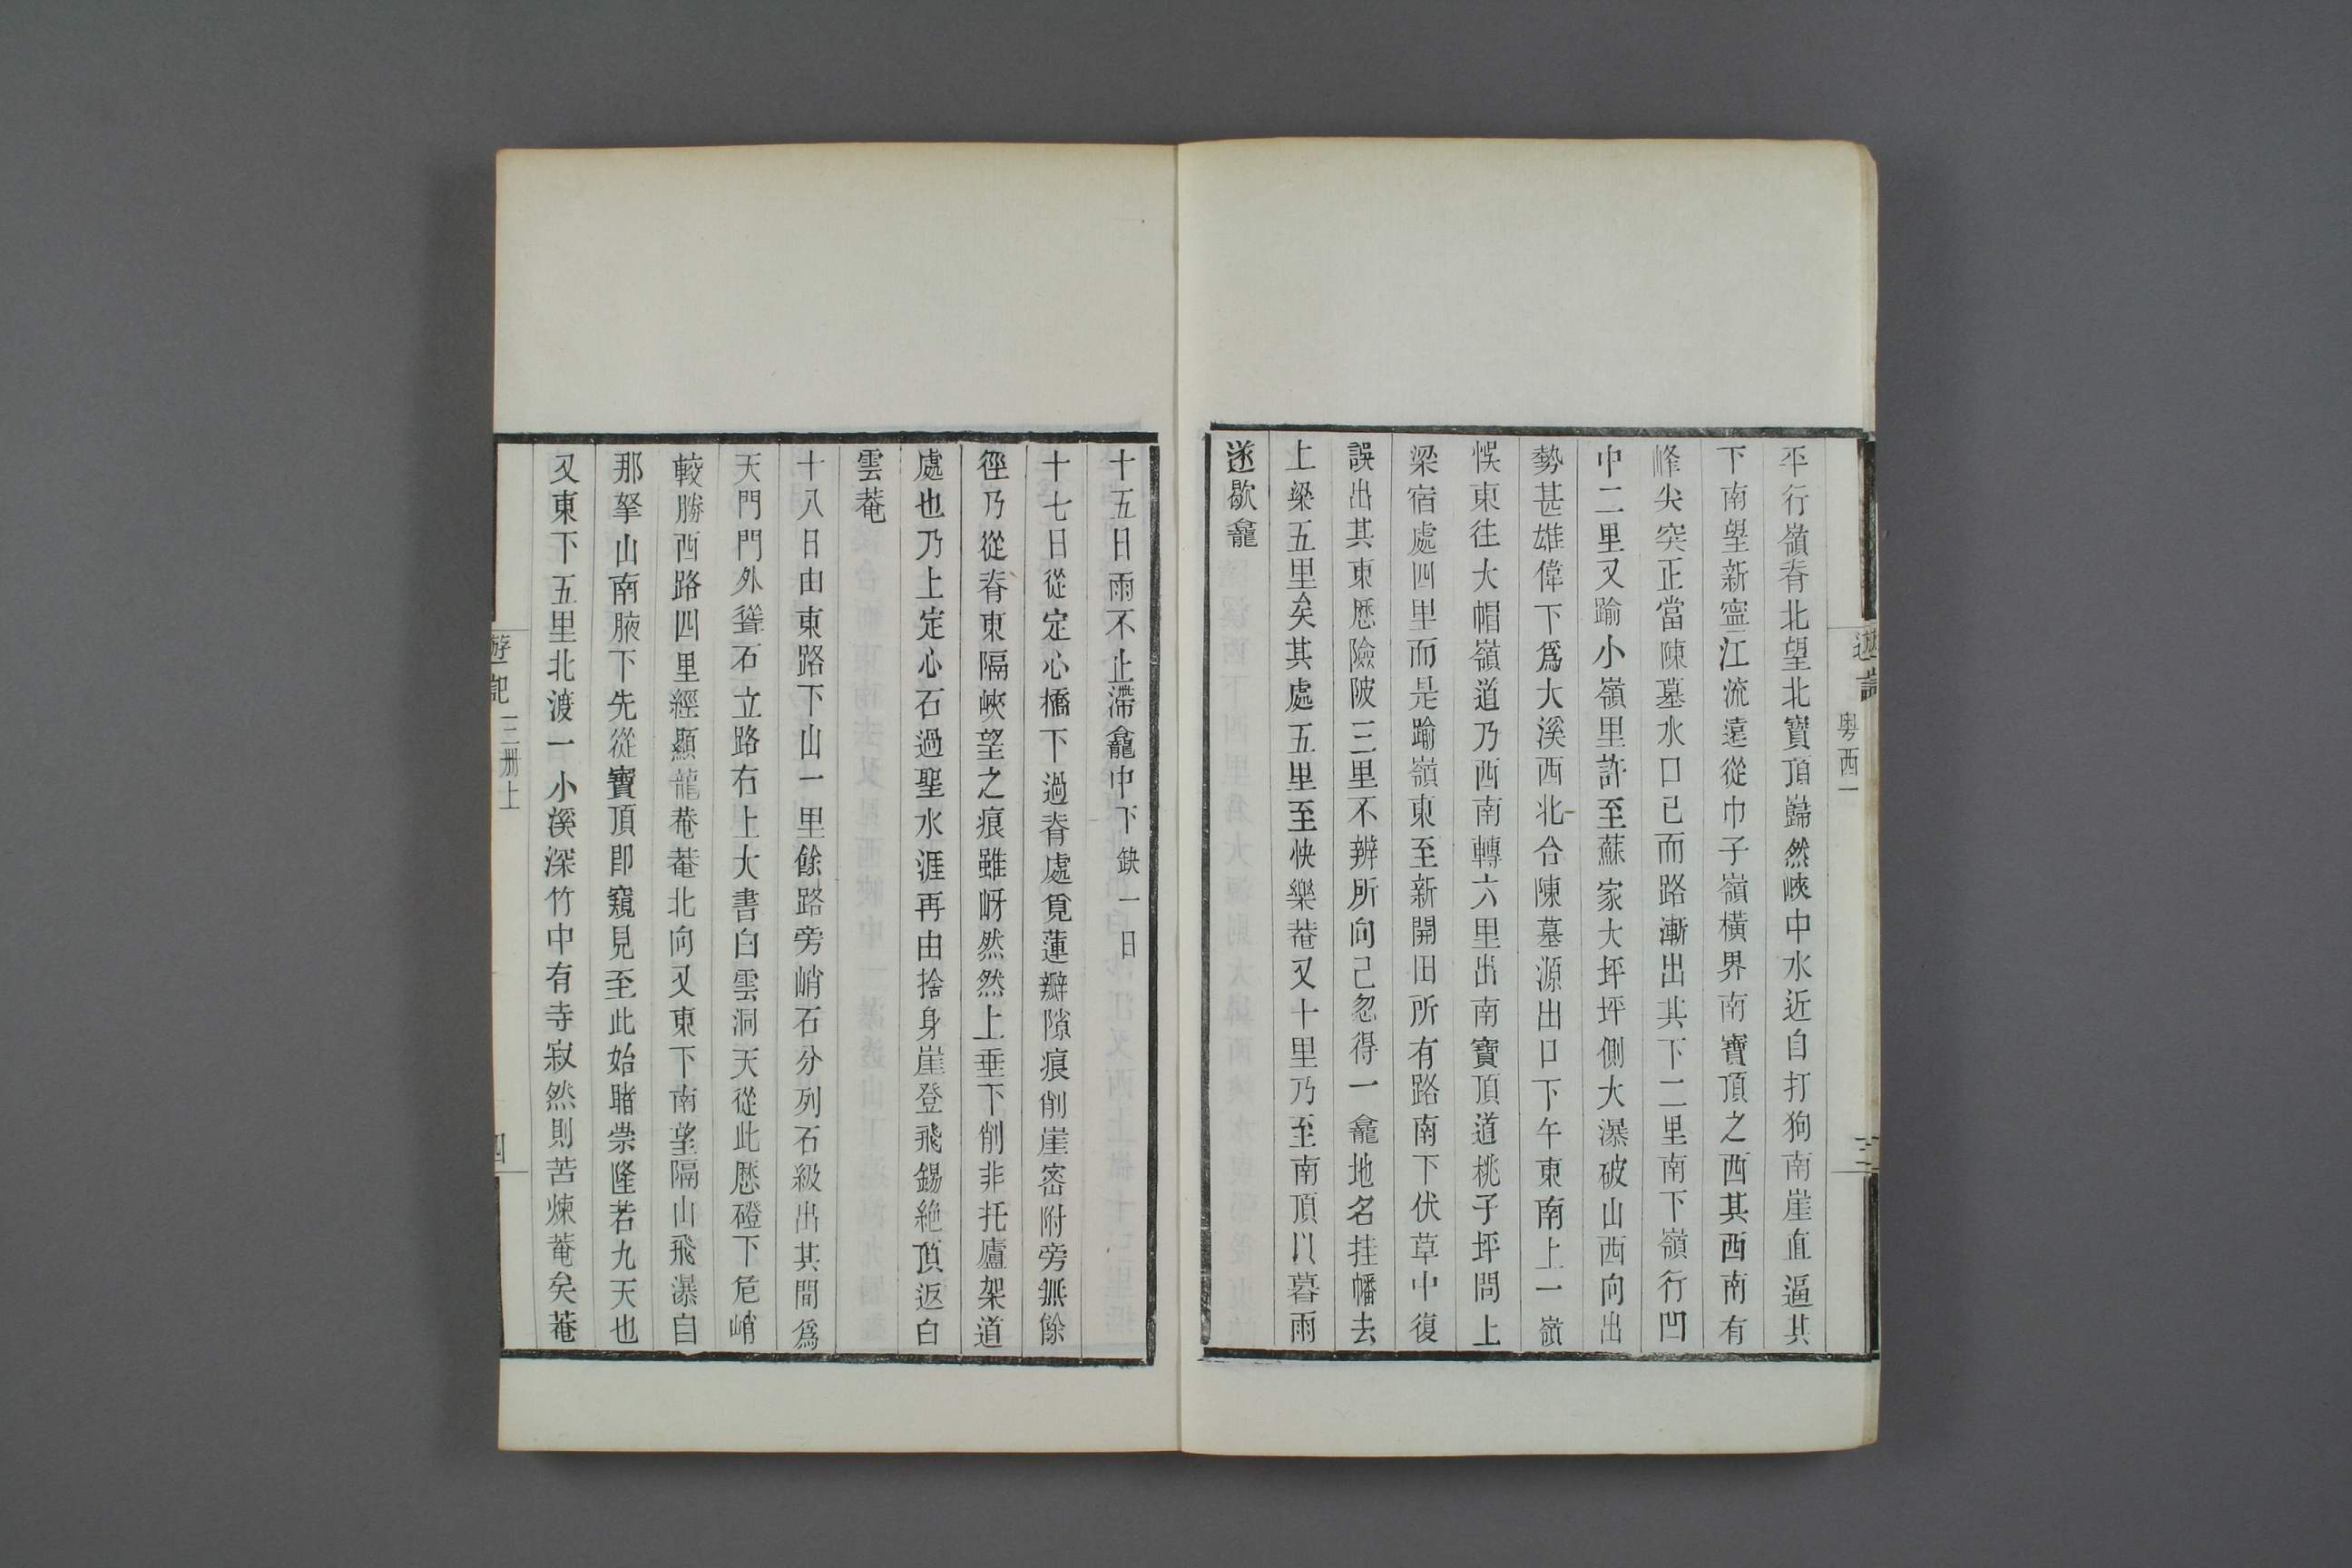 遊記 粤西一 三
平行嶺脊北望北寶頂巋然峽中水近自打狗南崖直逼其
下南望新寧江流遠從巾子嶺橫界南寶頂之西其西南有
峰尖突正當陳墓水口已而路漸出其下二里南下嶺行凹
中二里又踰小嶺里許至蘇家大坪坪側大瀑破山西向出
勢甚雄偉下爲大溪西北合陳墓源出口下午東南上一嶺
悞東往大帽嶺道乃西南轉六里出南寶頂道桃子坪問上
梁宿處四里而是踰嶺東至新開田所有路南下伏草中復
誤出其東歷險陂三里不辨所向已忽得一龕地名挂幡去
上梁五里矣其處五里至快樂菴又十里乃至南頂以暮雨
遂歇龕
十五日雨不止滯龕中下缺一日
十七日從定心橋下過脊處覓蓮瓣隙痕削崖密附旁無餘
徑乃從脊東隔峽望之痕雖岈然然上垂下削非托廬架道
處也乃上定心石過聖水涯再由捨身崖登飛錫絶頂返白
雲菴
十八日由東路下山一里餘路旁峭石分列石級出其間爲
天門門外聳石立路右上大書白雲洞天從此歷磴下危峭
較勝西路四里經顯龍菴菴北向又東下南望隔山飛瀑自
那拏山南腋下先從寶頂卽窺見至此始睹崇隆若九天也
又東下五里北渡一小溪深竹中有寺寂然則苦煉菴矣菴
遊記 三册上 四